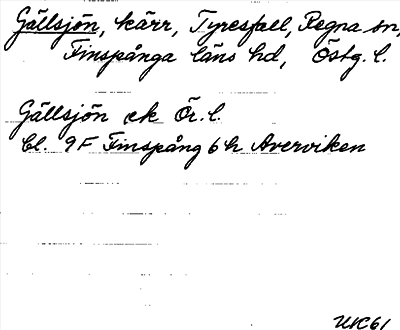 Gällsjön, kärr, Tyresfall, Regna sn,
Finspånga läns hd, Östg. l.
Gällsjön ek Ör. l.
bl. 9F Finspång 6h Averviken
UK61